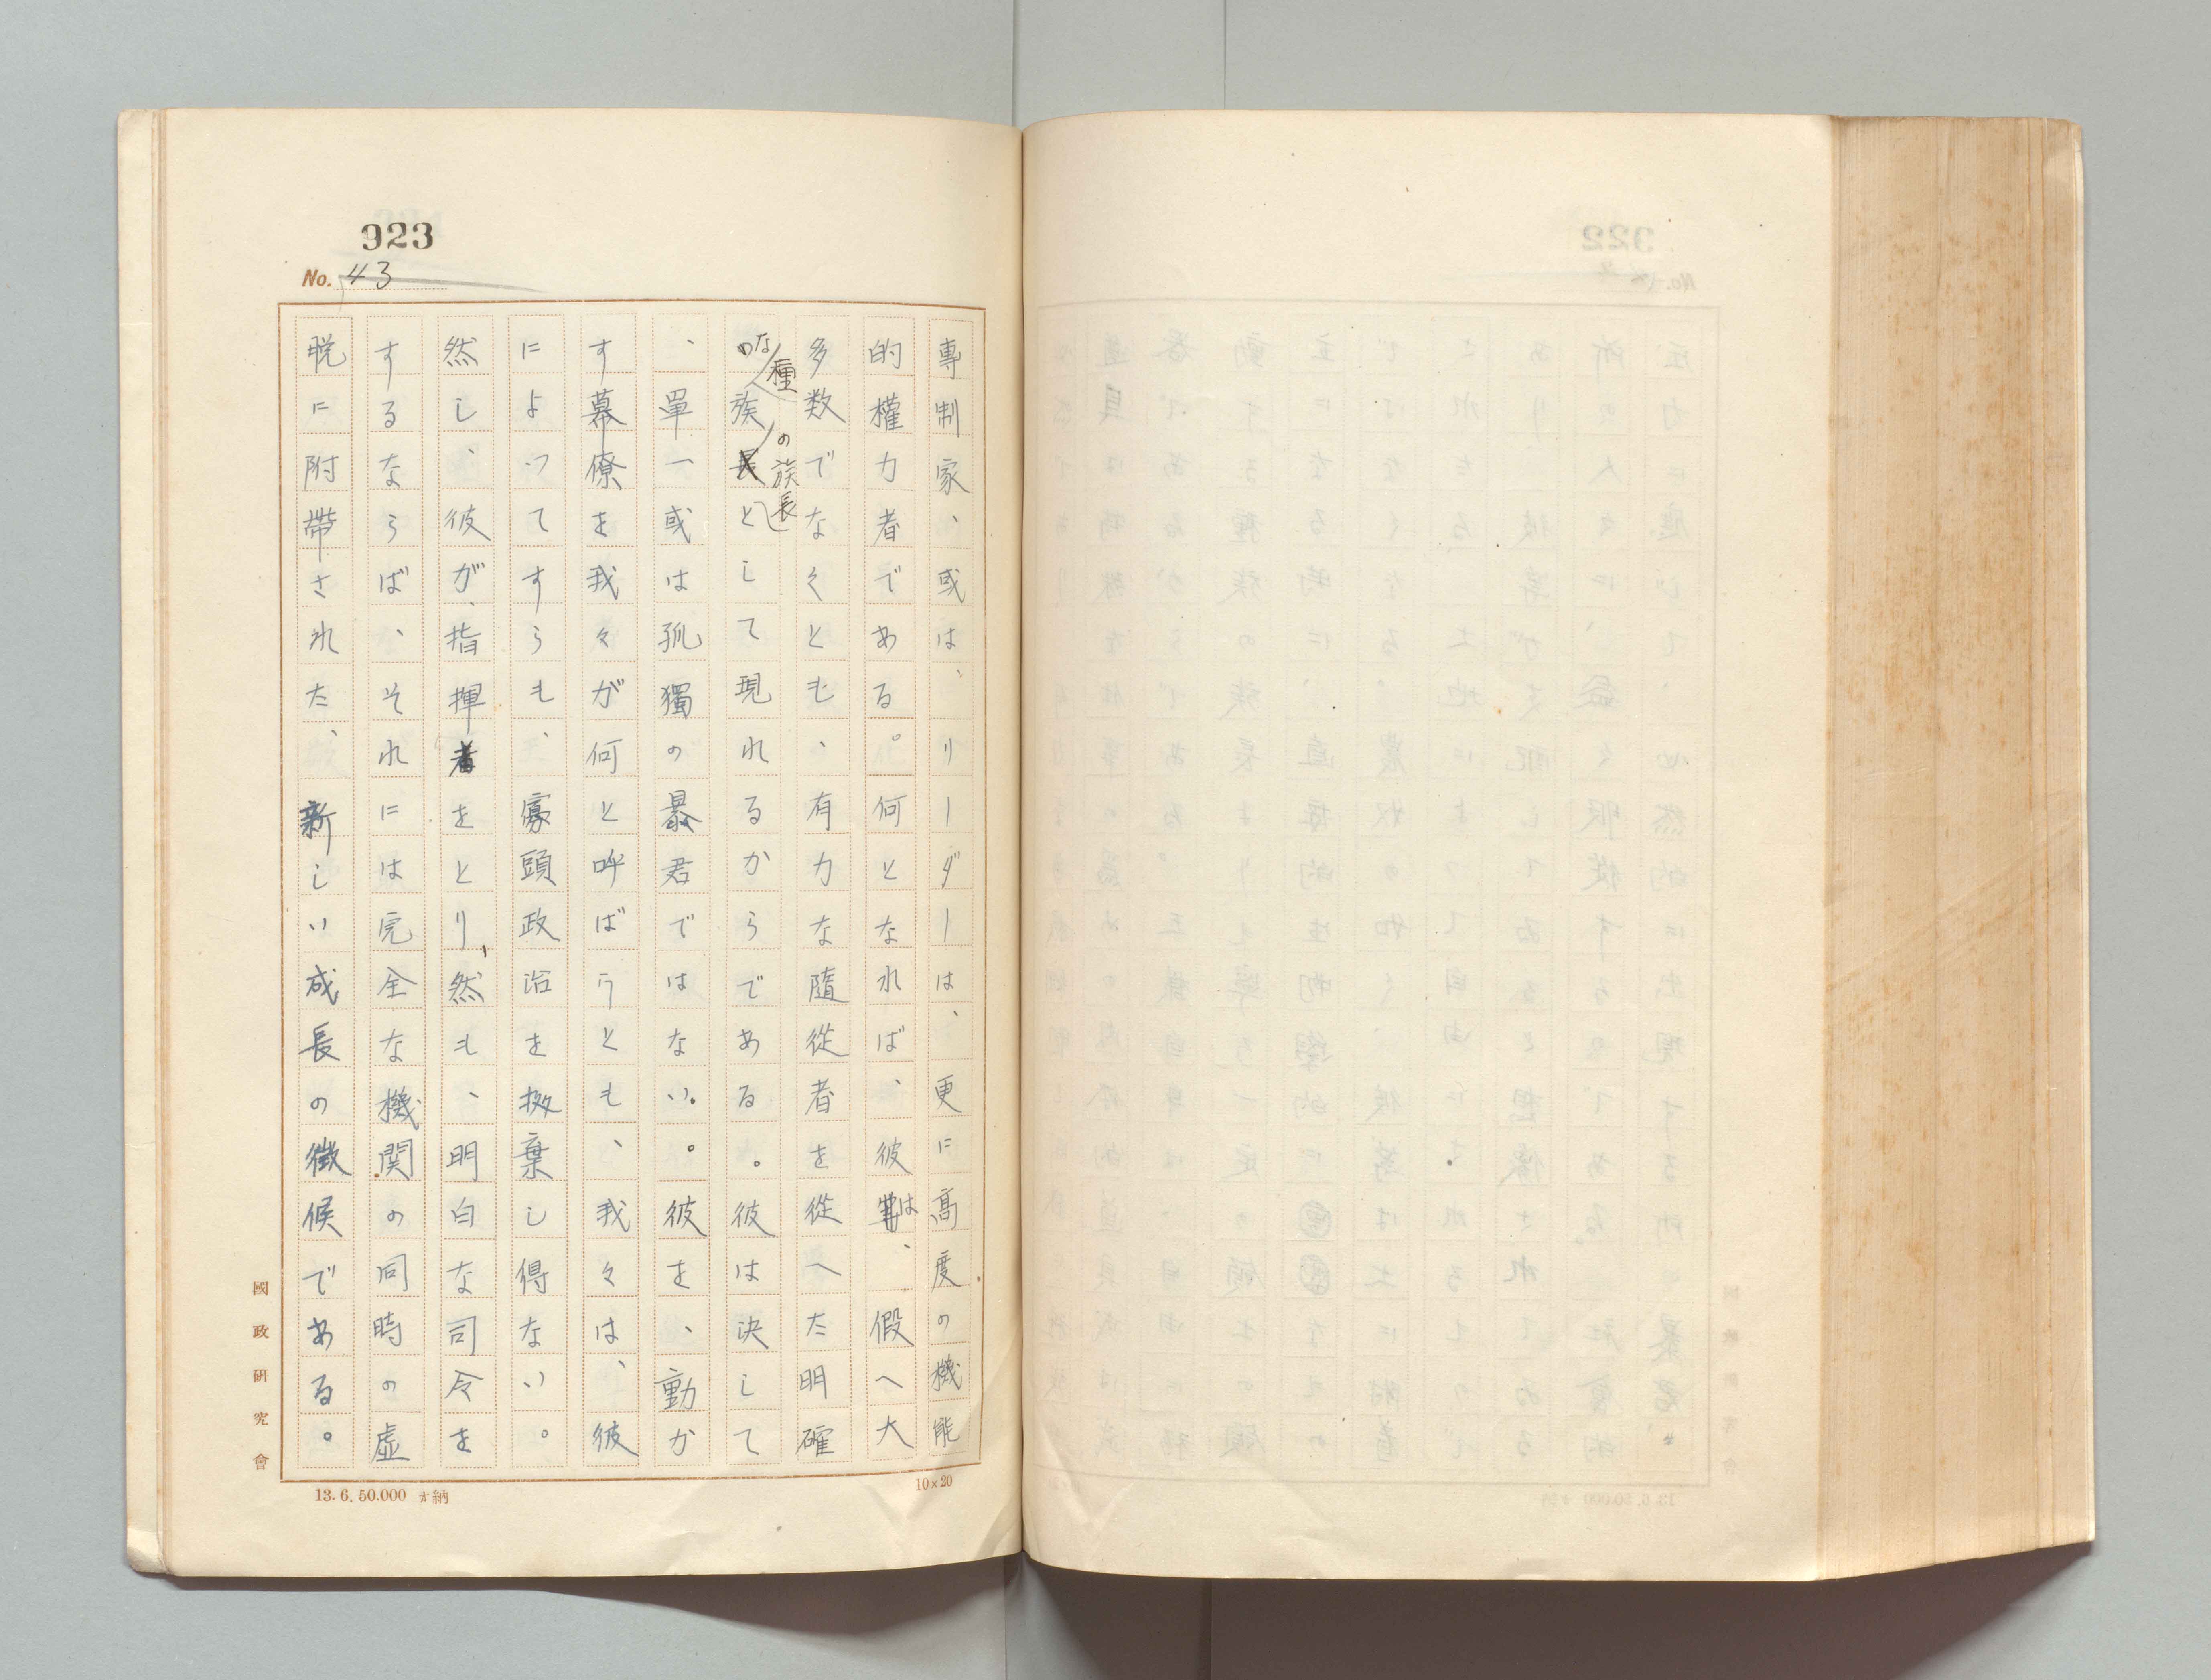 923
No. 43
專制家、或は、リーダーは、更に高度の機能
的權力者である。何となれば、彼は、假へ大
多数でなくとも、有力な隨從者を從へた明確
な種族の族長として現れるからである。彼は決して
、單一或は孤獨の暴君ではない。彼を、動か
す幕僚を我々が何と呼ばうとも、我々は、彼
によつてすらも、寡頭政治を拋棄し得ない。
然し、彼が、指揮者をとり、然も、明白な司令を
するならば、それには完全な機関の同時の虚
脱に附帶された、新しい成長の徵候である。
國政研究會
13.6.50.000 納
10×20